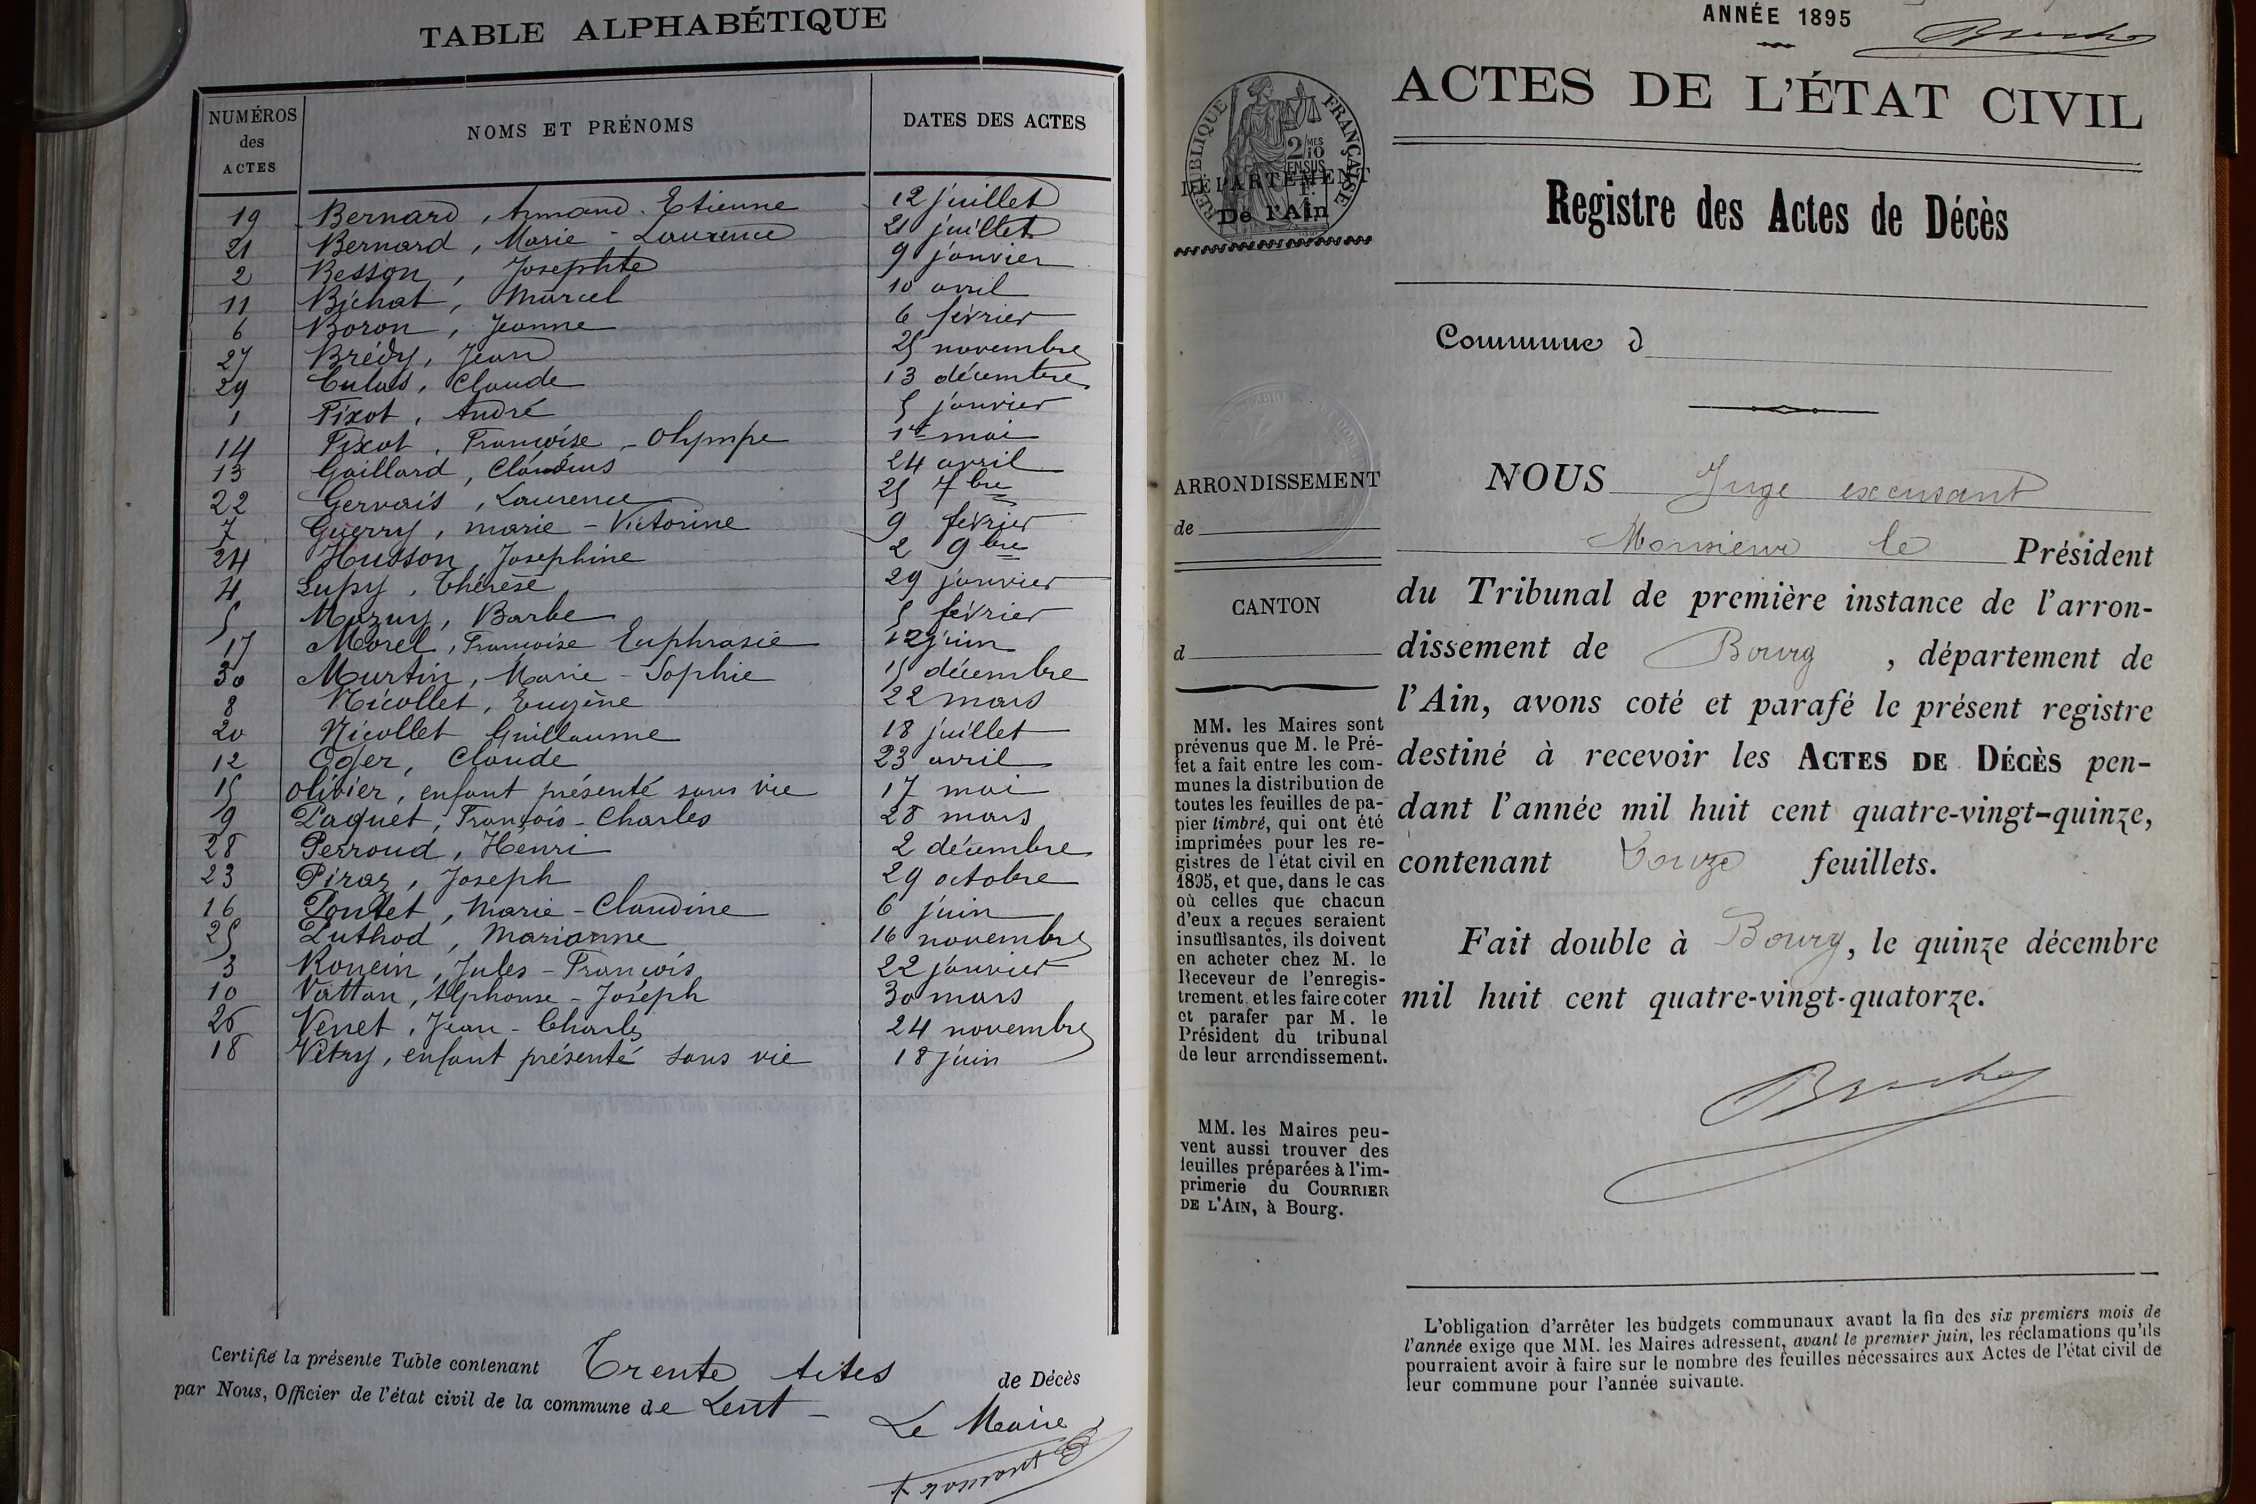 TABLE ALPHABÉTIQUE
NUMÉROS des ACTES NOMS ET PRÉNOMS DATES DES ACTES
19 Bernard, Armand Etienne 12 juillet
21 Bernard, Marie - Laurence 21 juillet
2 Besson, Josephte 9 janvier
11 Bichat, Marcel 10 avril
6 Boron, Jeanne 6 février
27 Brédy, Jean 25 novembre
29 Culas, Claude 13 décembre
1 Fixot, André 5 janvier
14 Fixot, Françoise - Olympe 1er mai
13 Gaillard, Claudius 24 avril
22 Gervais, Laurence 25 7bre
7 Guerry, marie - Victorine 9 février
24 Husson, Josephine 2 9bre
4 Lupy, Thérèse 29 janvier
5 Mazuy, Barbe 5 février
17 Morel, Françoise Euphrasie 12 juin
30 Murtin, Marie - Sophie 15 décembre
8 Nicollet, Eugène 22 mars
20 Nicollet Guillaume 18 juillet
12 Oger, Claude 23 avril
15 Olivier, enfant présenté sans vie 17 mai
9 Paquet, François - Charles 28 mars
28 Perroud, Henri 2 décembre
23 Piraz, Joseph 29 octobre
16 Pontet, Marie - Claudine 6 juin
25 Puthod, Marianne 16 novembre
3 Ronein, Jules - François 22 janvier
10 Vattan, Alphonse - Joseph 30 mars
26 Venet, Jean - Charles 24 novembre
18 Vitry, enfant présenté sans vie 18 juin
Certifié la présente Table contenant Trente actes de Décès
par Nous, Officier de l'état civil de la commune de Lent -
Le Maire
Fromont
ANNÉE 1895
ACTES DE L'ÉTAT CIVIL
RÉPUBLIQUE FRANÇAISE
2/10 MES
EN SUS
DÉPARTEMENT
De l'Ain
Registre des Actes de Décès
Commune d
ARRONDISSEMENT
de
CANTON
d
MM. les Maires sont
prévenus que M. le Pré-
fet a fait entre les com-
munes la distribution de
toutes les feuilles de pa-
pier timbré, qui ont été
imprimées pour les re-
gistres de l'état civil en
1895, et que, dans le cas
où celles que chacun
d'eux a reçues seraient
insuffisantes, ils doivent
en acheter chez M. le
Receveur de l'enregis-
trement et les faire coter
et parafer par M. le
Président du tribunal
de leur arrondissement.
MM. les Maires peu-
vent aussi trouver des
feuilles préparées à l'im-
primerie du COURRIER
DE L'AIN, à Bourg.
NOUS Juge excusant
Monsieur le Président
du Tribunal de première instance de l'arron-
dissement de Bourg, département de
l'Ain, avons coté et parafé le présent registre
destiné à recevoir les ACTES DE DÉCÈS pen-
dant l'année mil huit cent quatre-vingt-quinze,
contenant feuillets.
Fait double à Bourg, le quinze décembre
mil huit cent quatre-vingt-quatorze.
L'obligation d'arrêter les budgets communaux avant la fin des six premiers mois de
l'année exige que MM. les Maires adressent, avant le premier juin, les réclamations qu'ils
pourraient avoir à faire sur le nombre des feuilles nécessaires aux Actes de l'état civil de
leur commune pour l'année suivante.